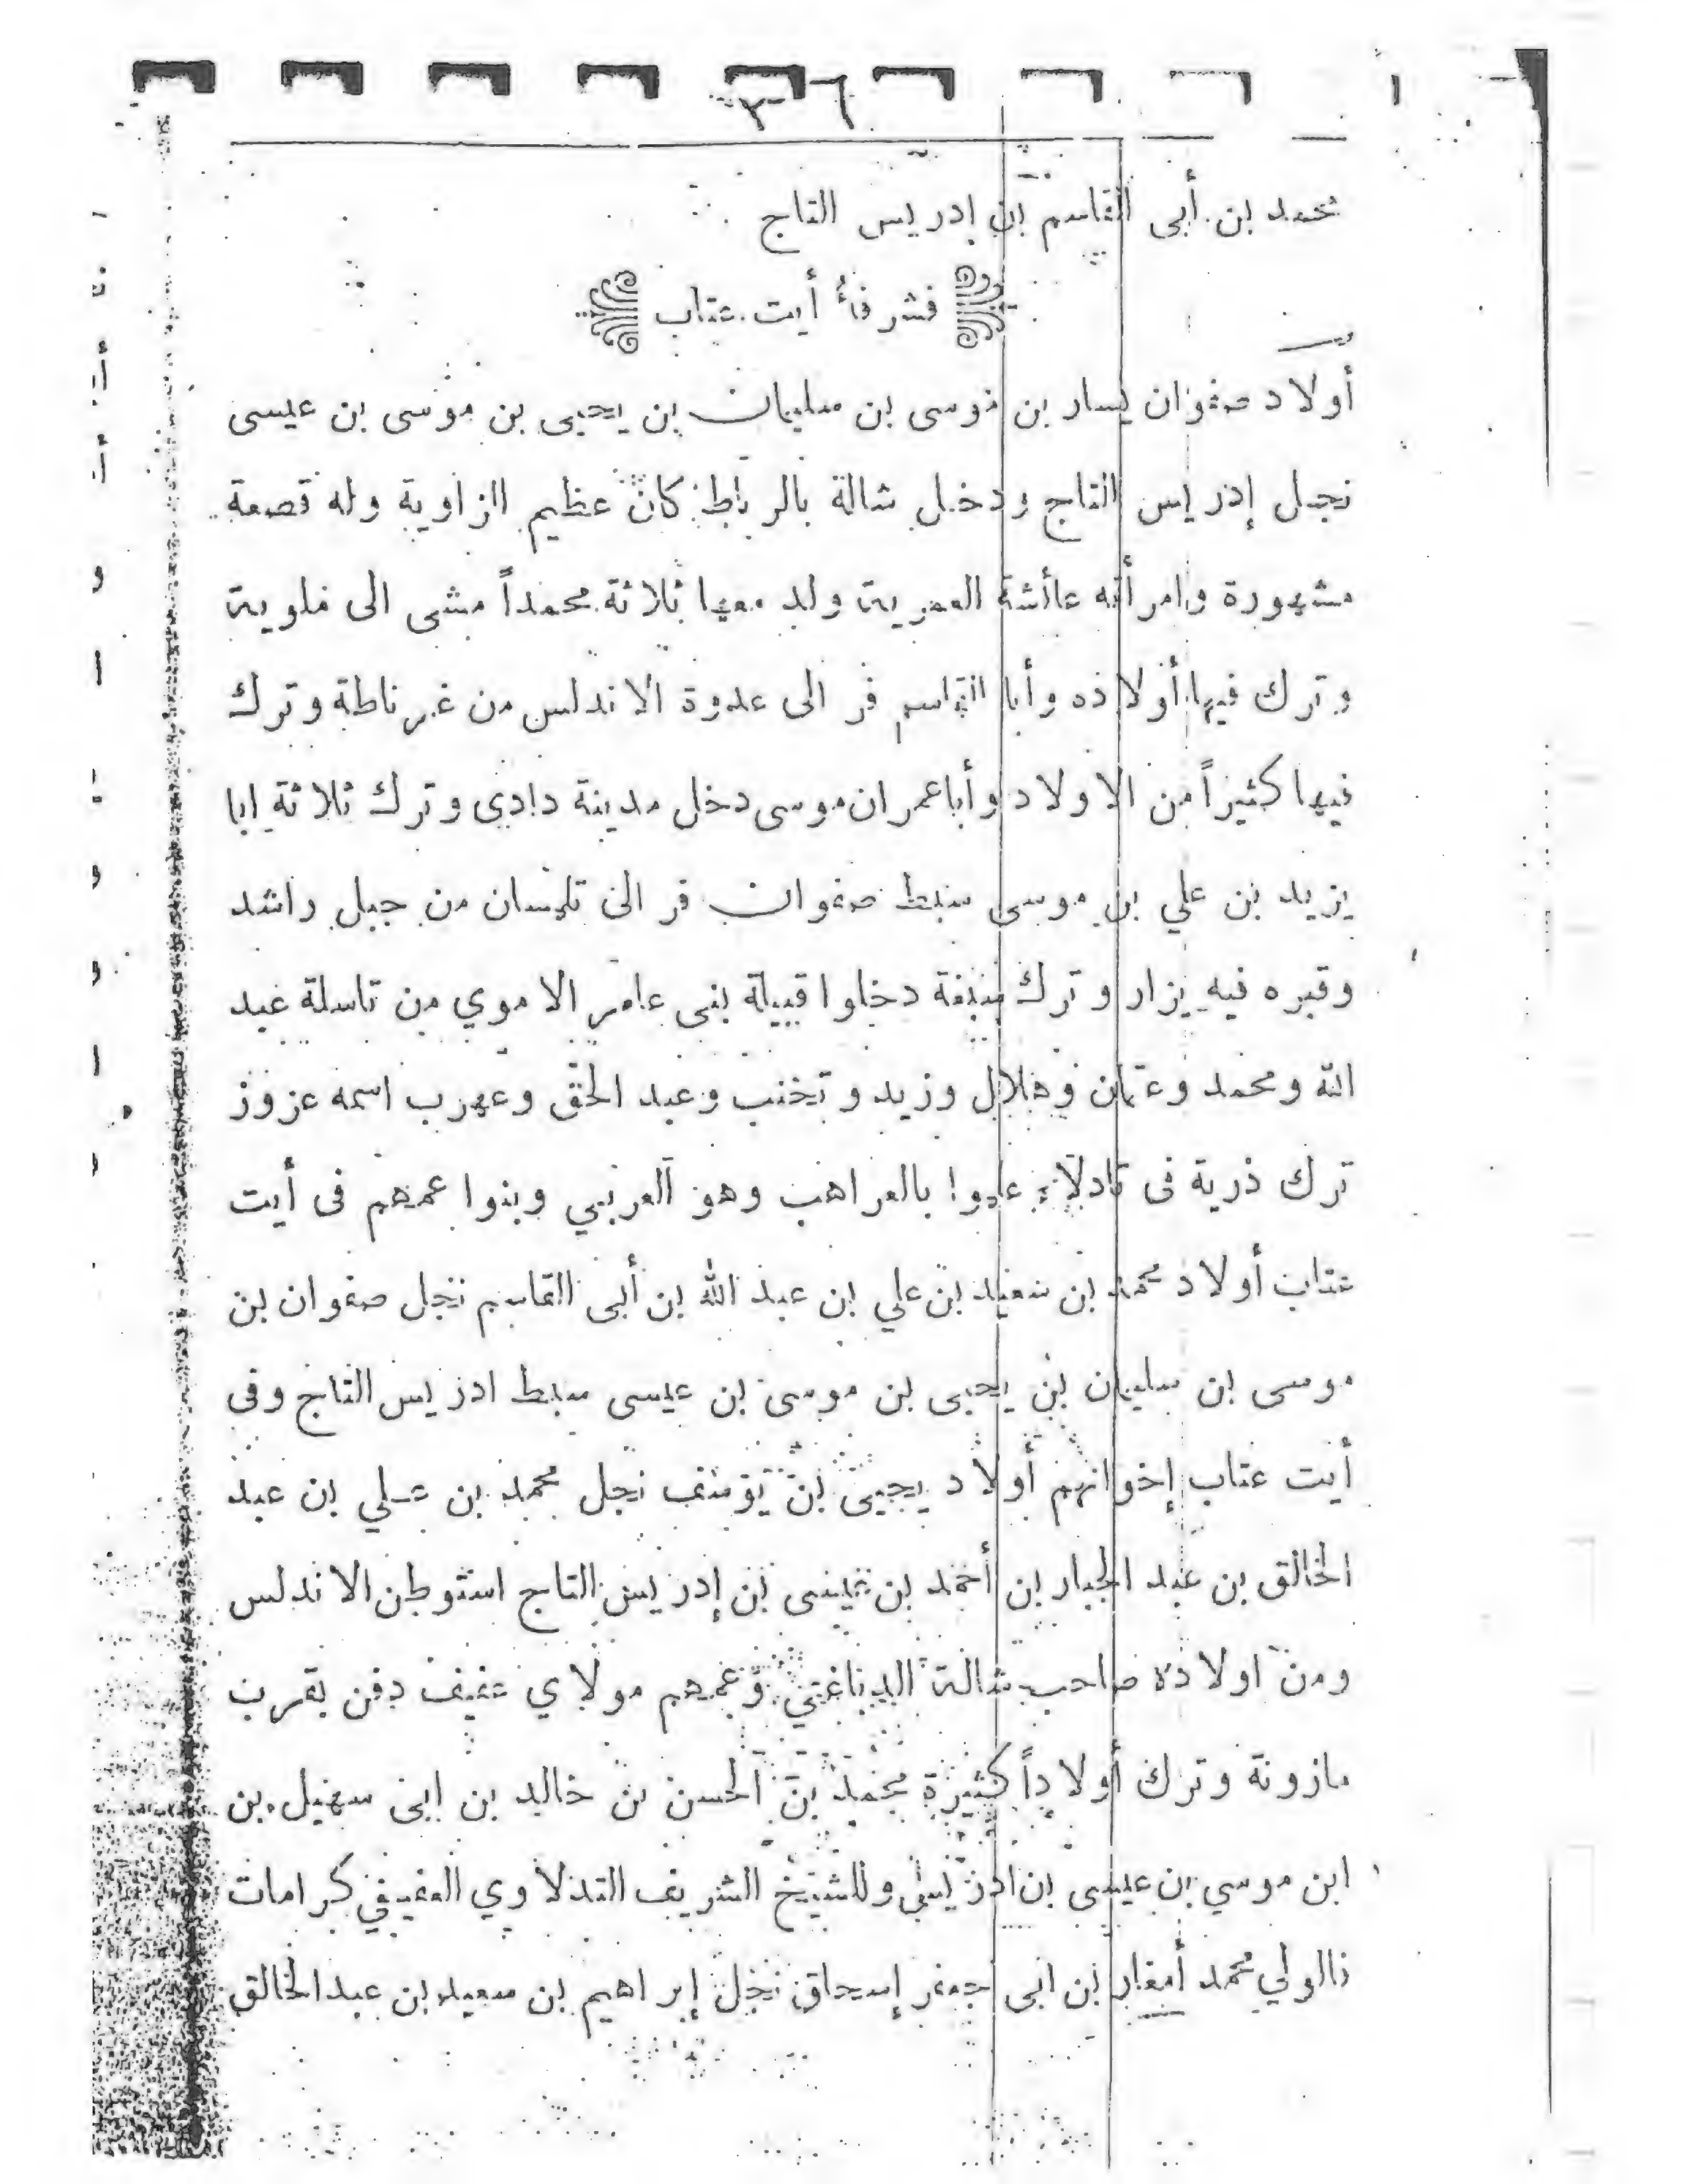 محمد بن أبى القاسم بن إدريس التاج
فشرفاء أيت عتاب
أولاد صفوان يسار بن موسى بن سليمان بن يحيى بن موسى بن عيسى
نجل إدريس التاج ودخل شالة بالرباط كان عظيم الزاوية وله قصعة
مشهورة وامرأته عائشة العمرية ولد معها ثلاثة محمداً مشى الى ملوية
وترك فيها أولاده وأبا القاسم فر الى عدوة الاندلس من غرناطة وترك
فيها كثيراً من الاولاد وأبا عمران موسى دخل مدينة دادى وترك ثلاثة ابا
يزيد بن علي بن موسى سبط صفوان فر الى تلمسان من جبل راشد
وقبره فيه يزار وترك سبعة دخلوا قبيلة بنى عامر الاموي من تاسلة عبد
الله ومحمد وعثمان وهلال وزيد وعبد الحق وعهرب اسمه عزوز
ترك ذرية فى تادلاء بالعراهب وهو العربي وبنوا عمهم فى أيت
عتاب أولاد محمد بن سعيد بن علي بن عبد الله بن أبى القاسم نجل صفوان بن
موسى بن سليمان بن يحيى بن موسى بن عيسى سبط ادريس التاج وفى
أيت عتاب إخوانهم أولاد يحيى بن يوسف نجل محمد بن علي بن عبد
الخالق بن عبد الجبار بن أحمد بن عيسى بن إدريس التاج استوطن الاندلس
ومن اولاده صاحب شالة وعمهم مولاي عفيف دفن بقرب
مازونة وترك أولاداً كثيرة محمد بن الحسن بن خالد بن ابى سهيل بن
ابن موسي بن عيسى بن ادريس وللشيخ الشريف التدلاوي العفيفي كرامات
فالولي محمد أمغار بن ابى جعفر إسحاق نجل إبراهيم بن سعيد بن عبد الخالق